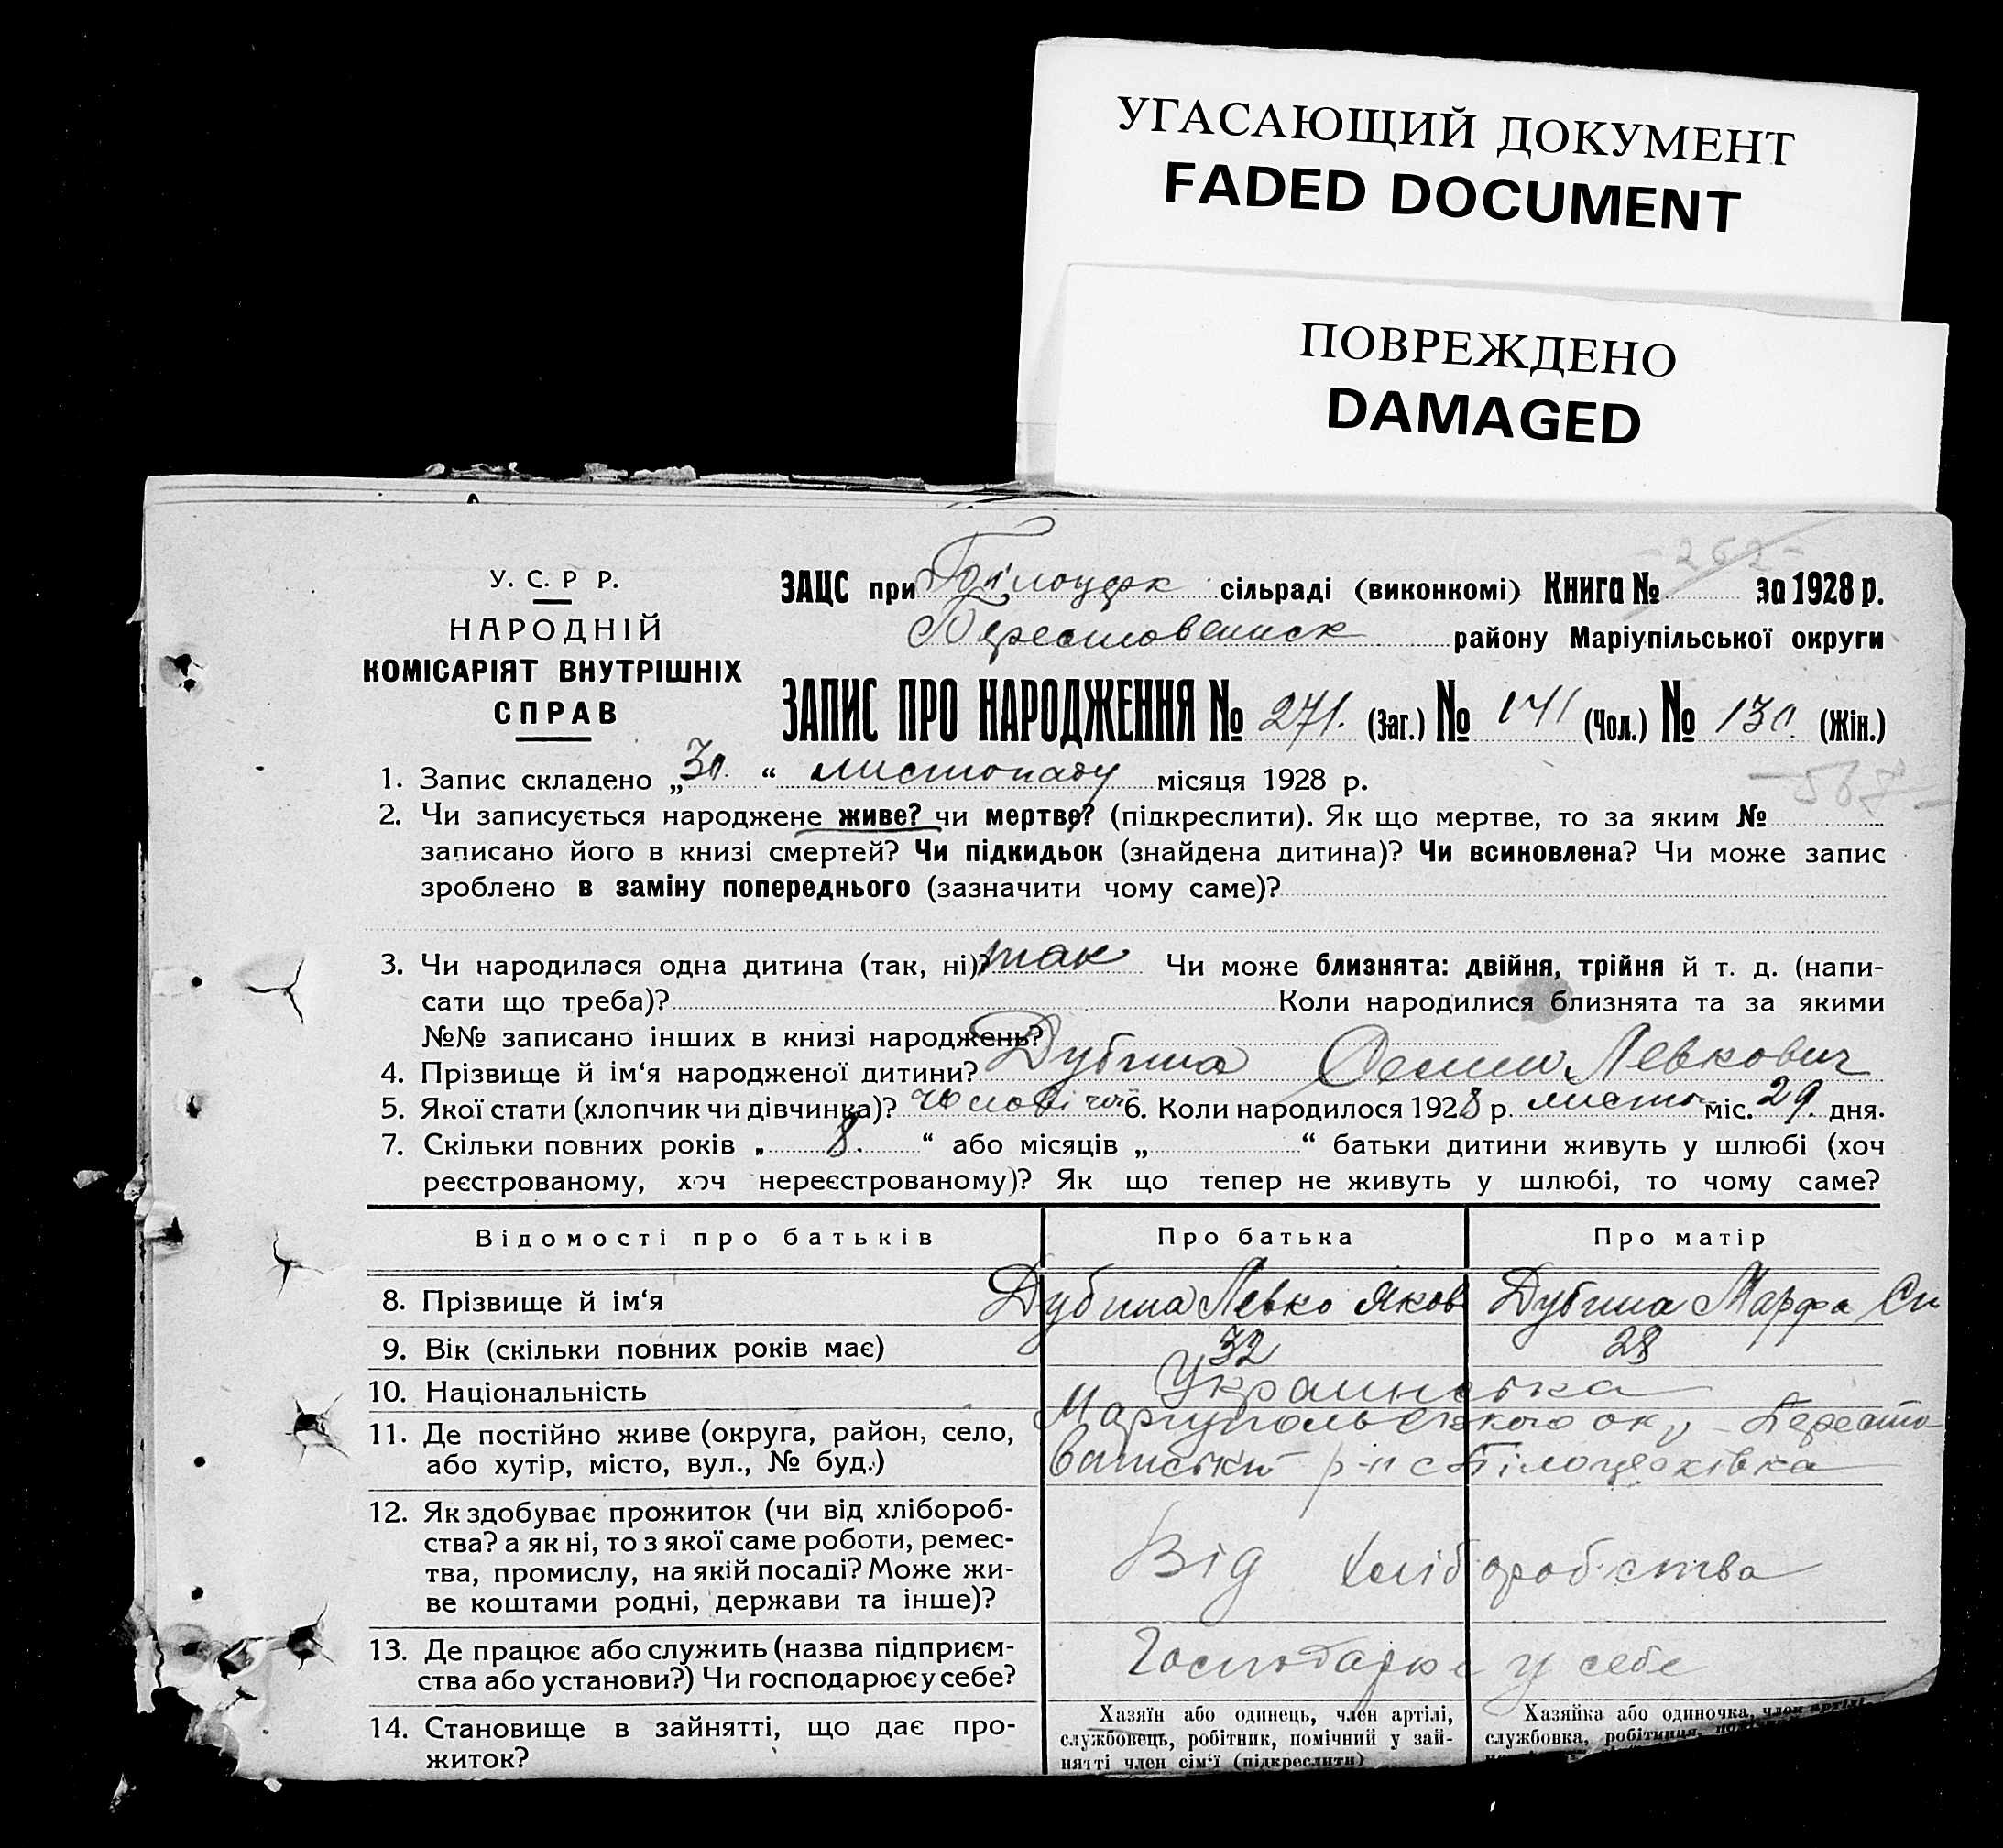 УГАСАЮЩИЙ ДОКУМЕНТ
FADED DOCUMENT
ПОВРЕЖДЕНО
DAMAGED
- 262 -
У. С. Р Р.
НАРОДНІЙ
КОМІСАРІЯТ ВНУТРІШНІХ
СПРАВ
ЗАЦС при Білоцерк сільраді (виконкомі) Книга № за 1928 р.
Берестовенск району Маріупільської округи
ЗАПИС ПРО НАРОДЖЕННЯ № 271. (Заг.) № 141 (Чол.) № 130. (Жін.)
1. Запис складено „30.“ листопаду місяця 1928 р.
2. Чи записується народжене живе? чи мертве? (підкреслити). Як що мертве, то за яким №
записано його в книзі смертей? Чи підкидьок (знайдена дитина)? Чи всиновлена? Чи може запис
зроблено в заміну попереднього (зазначити чому саме)?
3. Чи народилася одна дитина (так, ні)? так Чи може близнята: двійня, трійня й т. д. (напи-
сати що треба)? Коли народилися близнята та за якими
№№ записано інших в книзі народжень?
4. Прізвище й ім‘я народженої дитини? Дубина Семен Левкович
5. Якої стати (хлопчик чи дівчинка)? 6. Коли народилося 1928 р. листо міс. 29. дня.
7. Скільки повних років „ 8. “ або місяців „ “ батьки дитини живуть у шлюбі (хоч
реєстрованому, хоч нереєстрованому)? Як що тепер не живуть у шлюбі, то чому саме?
Відомості про батьків Про батька Про матір
8. Прізвище й ім‘я Дубина Левко Яков Дубина Марфа Си
9. Вік (скільки повних років має) 32 28
10. Національність Украинська
11. Де постійно живе (округа, район, село, Мариупольского окр Бересто
або хутір, місто, вул., № буд.) р-н с Білоцерківка
12. Як здобуває прожиток (чи від хлібороб-
ства? а як ні, то з якої саме роботи, ремес-
тва, промислу, на якій посаді? Може жи-
ве коштами родні, держави та інше)?
Від хліборобства
13. Де працює або служить (назва підприєм-
ства або установи?) Чи господарює у себе?
Господарює у себе
14. Становище в зайнятті, що дає про-
житок?
Хазяїн або одинець, член артілі,
службовець, робітник, помічний у зай-
нятті член сім‘ї (підкреслити)
Хазяйка або одиночка, член артілі
службовка, робітниця,